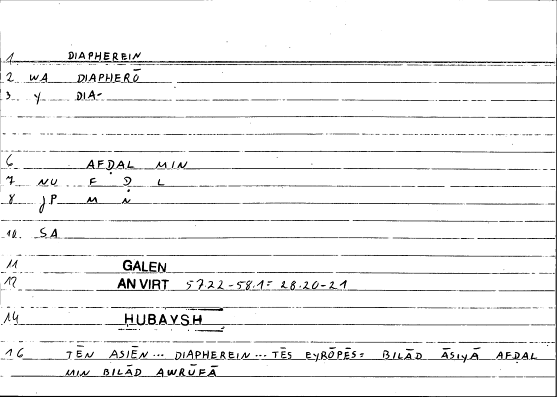 1 DIAPHEREIN
2 WA DIAPHERŌ
3 Y DIA-
6 AFḌAL MIN
7 NU F Ḍ L
8 JP M N
10 SA
11 GALEN
12 AN VIRT 57.22-58.1= 28.20-21
14 HUBAYSH
16 TĒN ASIĒN... DIAPHEREIN... TĒS EYRŌPĒS= BILĀD ĀSIYĀ AFḌAL
MIN BILĀD AWRŪFĀ